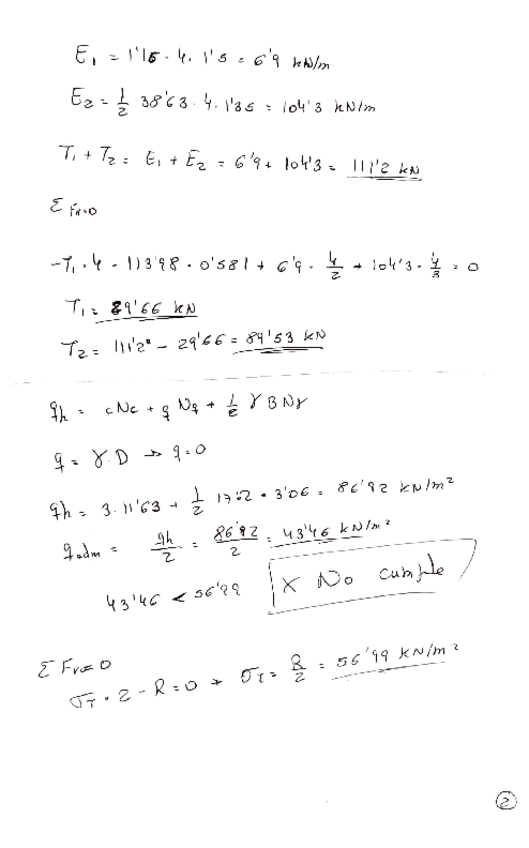 E₁ = 1'15 · 4 · 1'5 = 6'9 kN/m
E₂ = 1/2 38'63 · 4 · 1'35 = 104'3 kN/m
T₁ + T₂ = E₁ + E₂ = 6'9 + 104'3 = 111'2 kN
Σ FH=0
-T₁ · 4 - 113'98 · 0'581 + 6'9 · 4/2 + 104'3 · 4/3 = 0
T₁ = 29'66 kN
T₂ = 111'2 - 29'66 = 84'53 kN
qh = cNc + q Nq + 1/2 γ B Nγ
q = γ·D → q=0
qh = 3 · 11'63 + 1/2 17 · 2 · 3'06 = 86'92 kN/m²
qadm = qh/2 = 86'92/2 = 43'46 kN/m²
43'46 < 56'99 X No cumple
Σ Fv=0
σT · 2 - R = 0 → σT = R/2 = 56'99 kN/m²
2